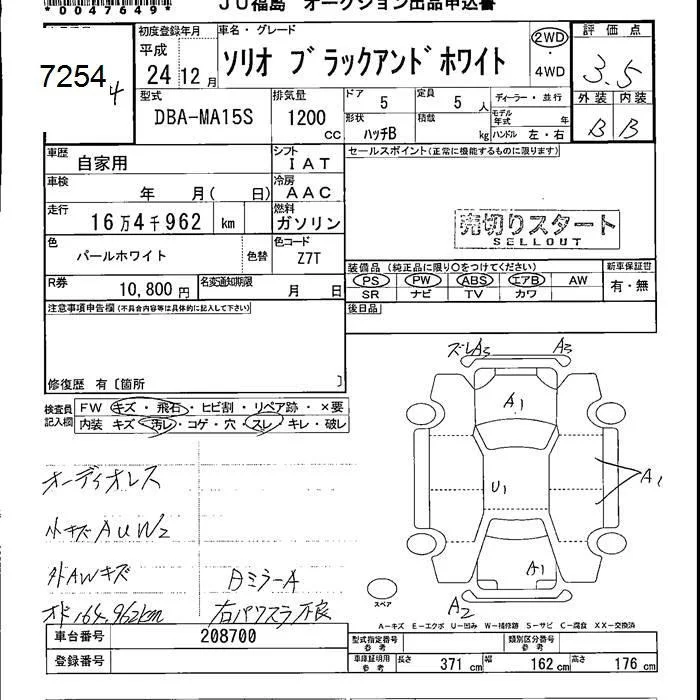 *0047649*
ＪＵ福島　オークション出品申込書
7254 4
初度登録年月 車名・グレード 評価点
平成 24 12 月 ソリオ ブラックアンドホワイト 2WD・4WD 3.5
型式 排気量 ドア 5 定員 5 人 ディーラー・並行 外装 内装
DBA-MA15S 1200 cc 形状 ハッチB 積載 kg モデル年式 年 ハンドル 左・右 B B
車歴 自家用 シフト IAT セールスポイント(正常に機能するものに限ります)
車検 年 月( 日) 冷房 AAC
走行 16万4千962 km 燃料 ガソリン 売切りスタート
SELLOUT
色 パールホワイト 色替 色コード Z7T
装備品 (純正品に限り○をつけてください) 新車保証書
R券 10,800円 名変通知期限 月 日 PS PW ABS エアB AW 有・無
SR ナビ TV カワ
注意事項申告欄(不具合内容等は具体的に記入して下さい) 後日品
修復歴 有〔箇所 〕
ズレA3 A3
A1
検査員記入欄 FW キズ・飛石・ヒビ割・リペア跡・×要
内装 キズ・汚レ・コゲ・穴・スレ・キレ・破レ
オーディオレス U1 A1
小キズAUW2
外AWキズ Bミラー A A1
オド164,962km 右パワスラ不良 スペア A2
A-キズ E-エクボ U-凹み W-補修跡 S-サビ C-腐食 XX-交換済
車台番号 208700 型式指定番号 参考 類別区分番号 参考
登録番号 車庫証明用 参考 長さ 371 cm 幅 162 cm 高さ 176 cm